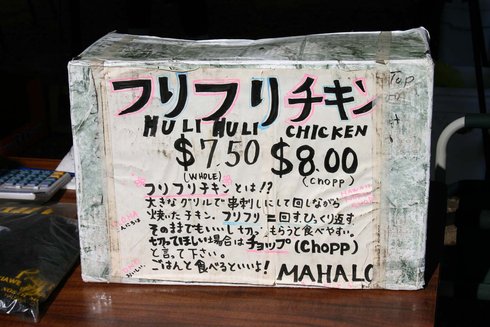 フリフリチキン
HULI HULI CHICKEN
$7.50 $8.00
(WHOLE) (CHOPP)
フリフリチキンとは!?
大きなグリルで串刺しにして回しながら
焼いたチキン。フリフリ=回す、ひっくり返す
そのままでもいいし切ってもらうと食べやすい。
切ってほしい場合はチョップ(CHOPP)
と言って下さい。
ごはんと食べるといいよ! MAHALO
TOP
おいしい